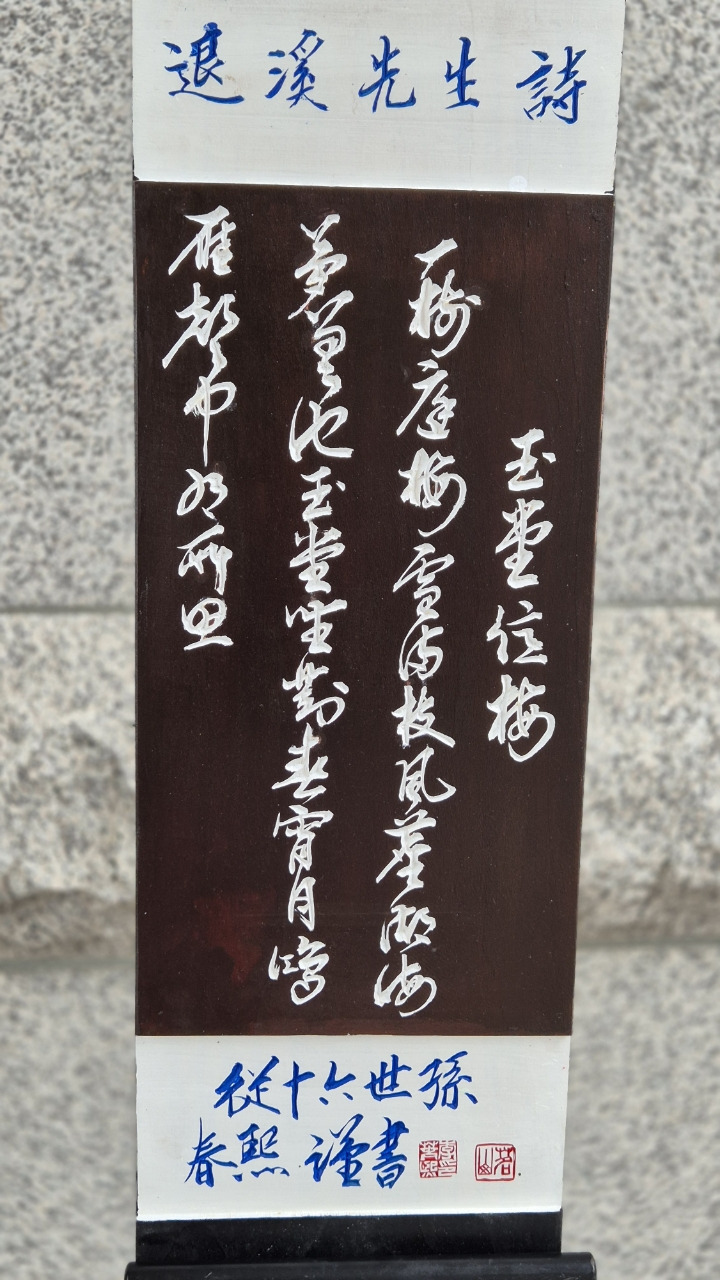 退溪先生詩
玉堂憶梅
一樹庭梅雪滿枝風塵湖海
夢差池玉堂坐對春宵月鴻
雁聲中有所思
從十六世孫
春熙 謹書